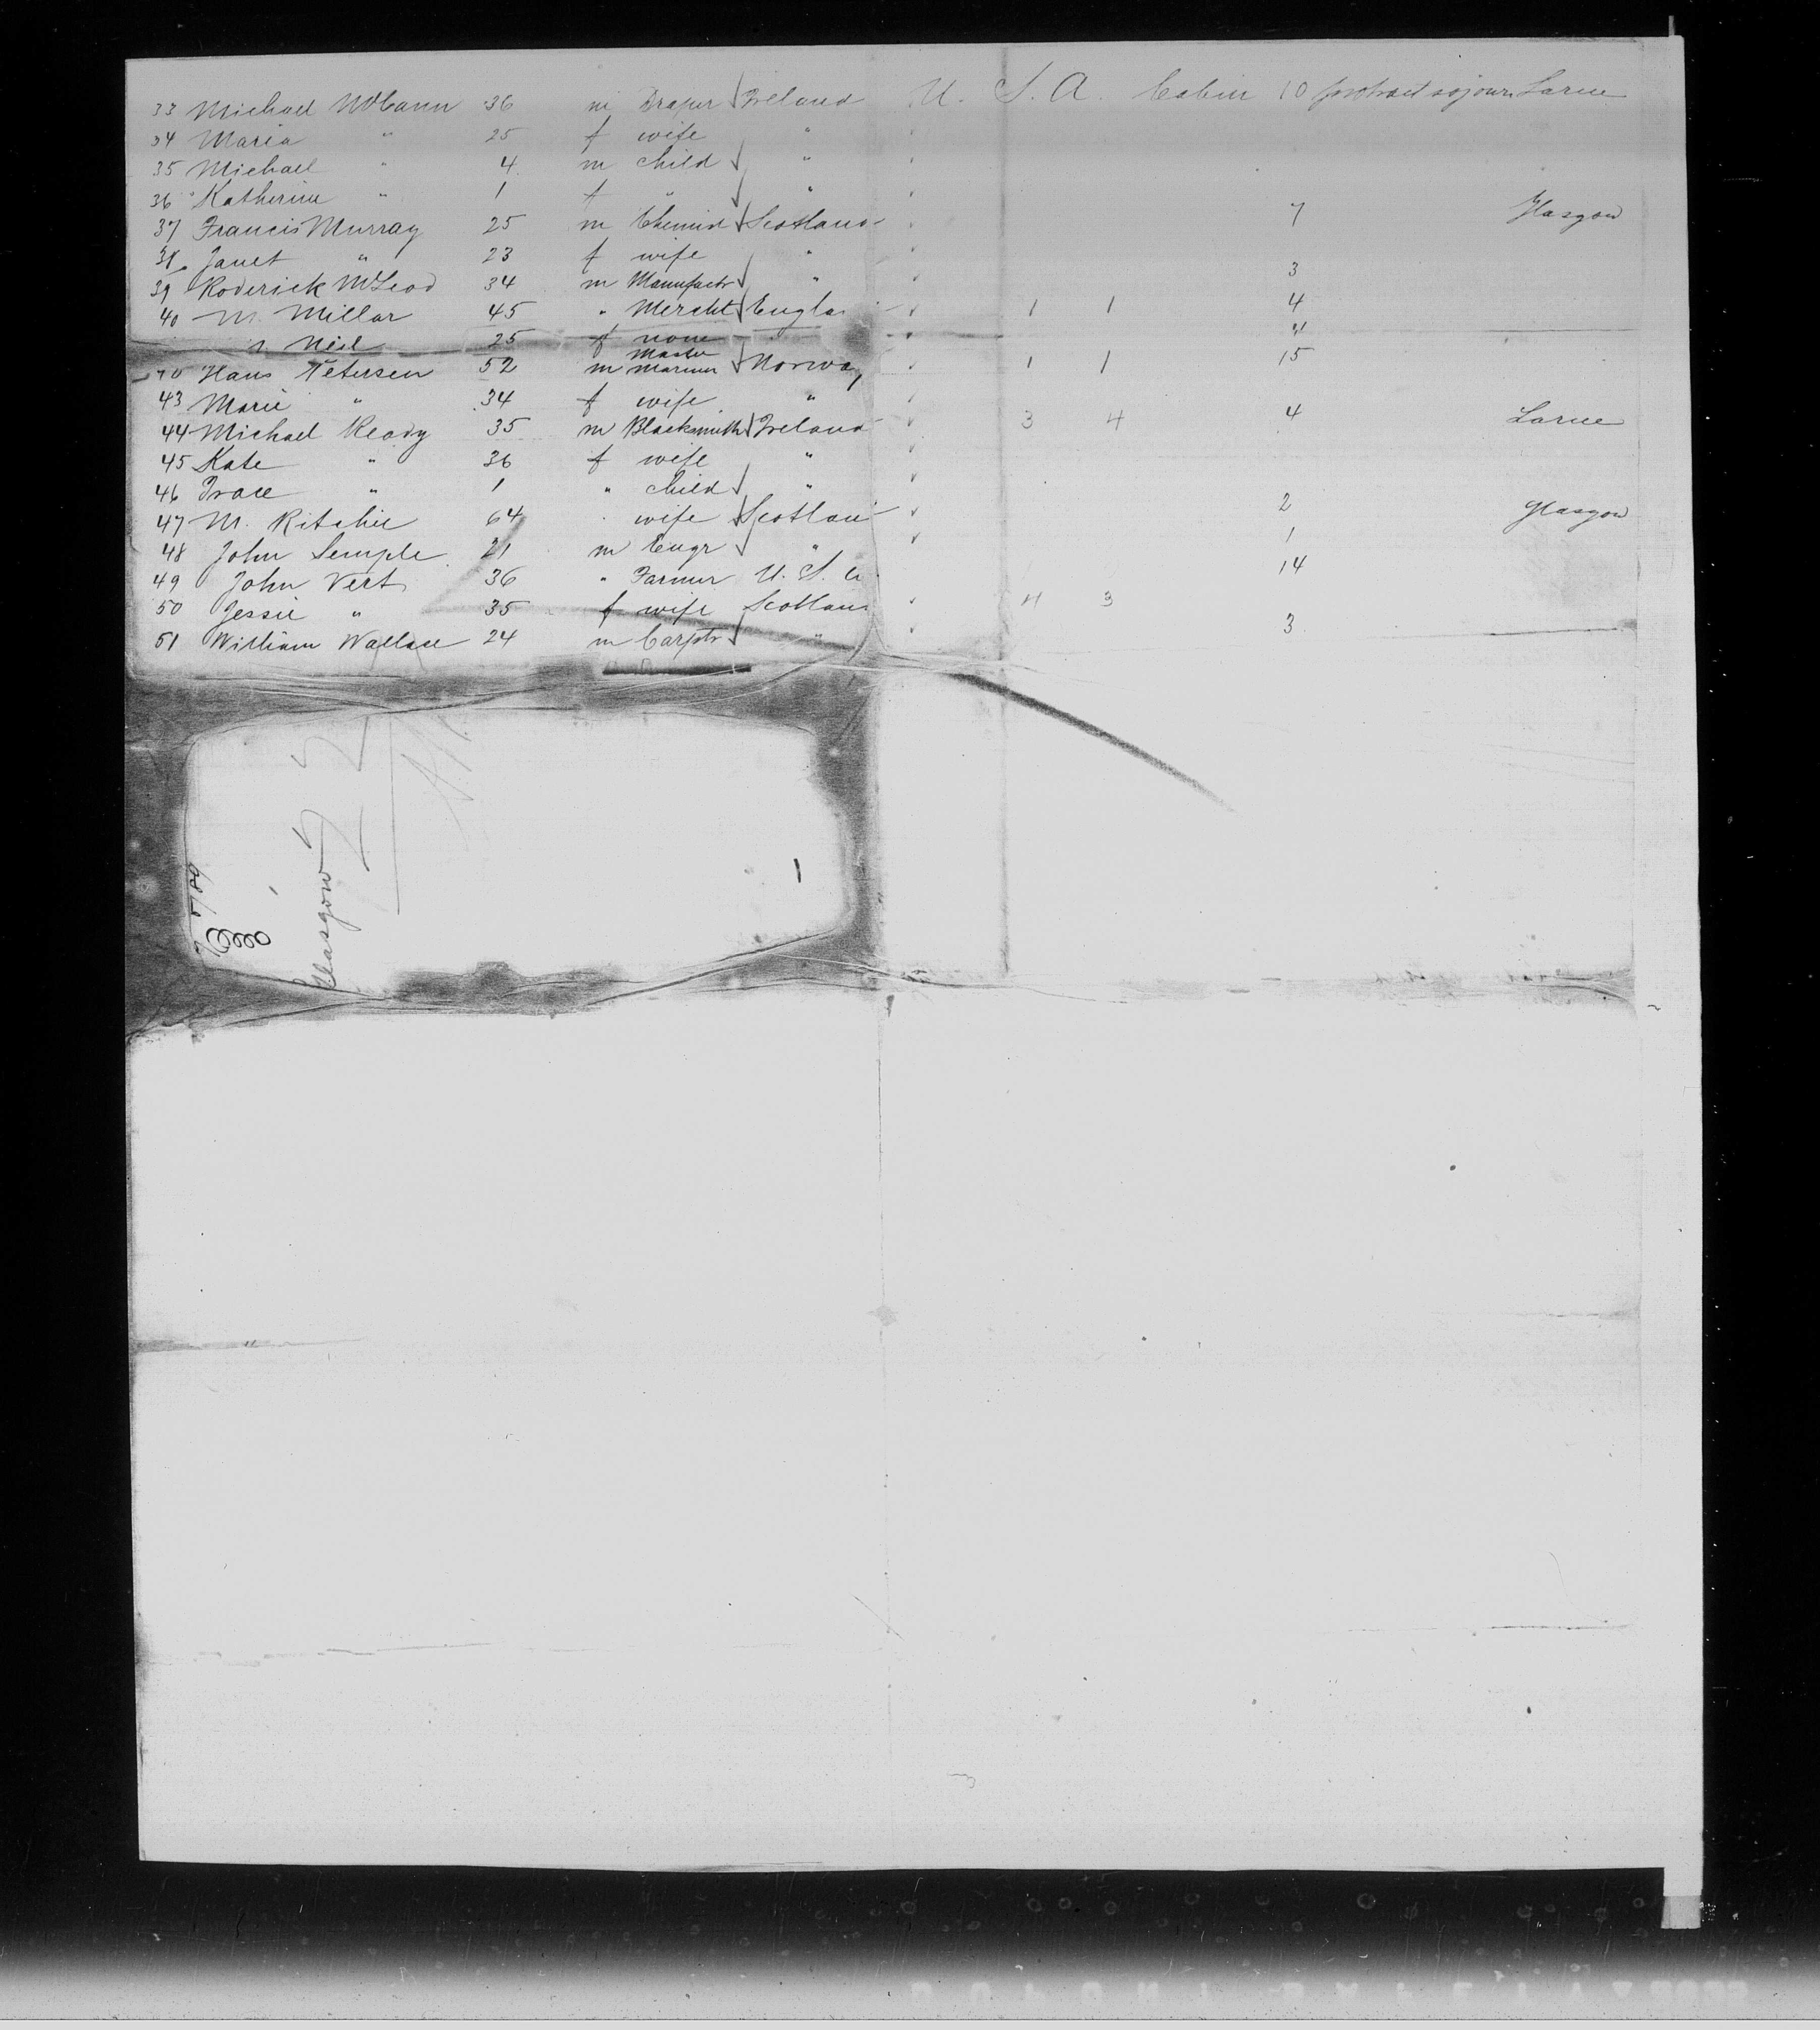 33 Michael McCann 36 m Draper Ireland U. S. A. Cabin 10 protract sojourn Larne
34 Maria " 25 f wife "
35 Michael " 4 m child "
36 Katherine " 1 f " "
37 Francis Murray 25 m Chemist Scotland 7 Glasgow
38 Janet " 23 f wife "
39 Roderick McLeod 34 m Manufactr " 3
40 M. Millar 45 " Mercht Engla 1 1 4
Neil 25 f none "
Hans Petersen 52 m Master Mariner Norway 1 1 15
43 Marie " 34 f wife "
44 Michael Ready 35 m Blacksmith Ireland 3 4 4 Larne
45 Kate " 36 f wife "
46 " 1 " child "
47 M. Ritchie 64 wife Scotlan 2 Glasgow
48 John Semple 21 m Engr " 1
49 John Vert 36 " Farmer U. S. a 14
50 Jessie " 35 f wife Scotlan 4 3
51 William Wallace 24 m Carptr " 3
Glasgow